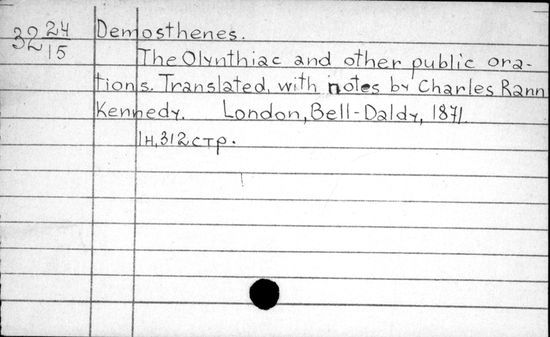 32 24/15 Demosthenes.
The Olynthiac and other public ora-
tions. Translated, with notes by Charles Rann
Kennedy. London, Bell-Daldy, 1871.
1н, 312 стр.